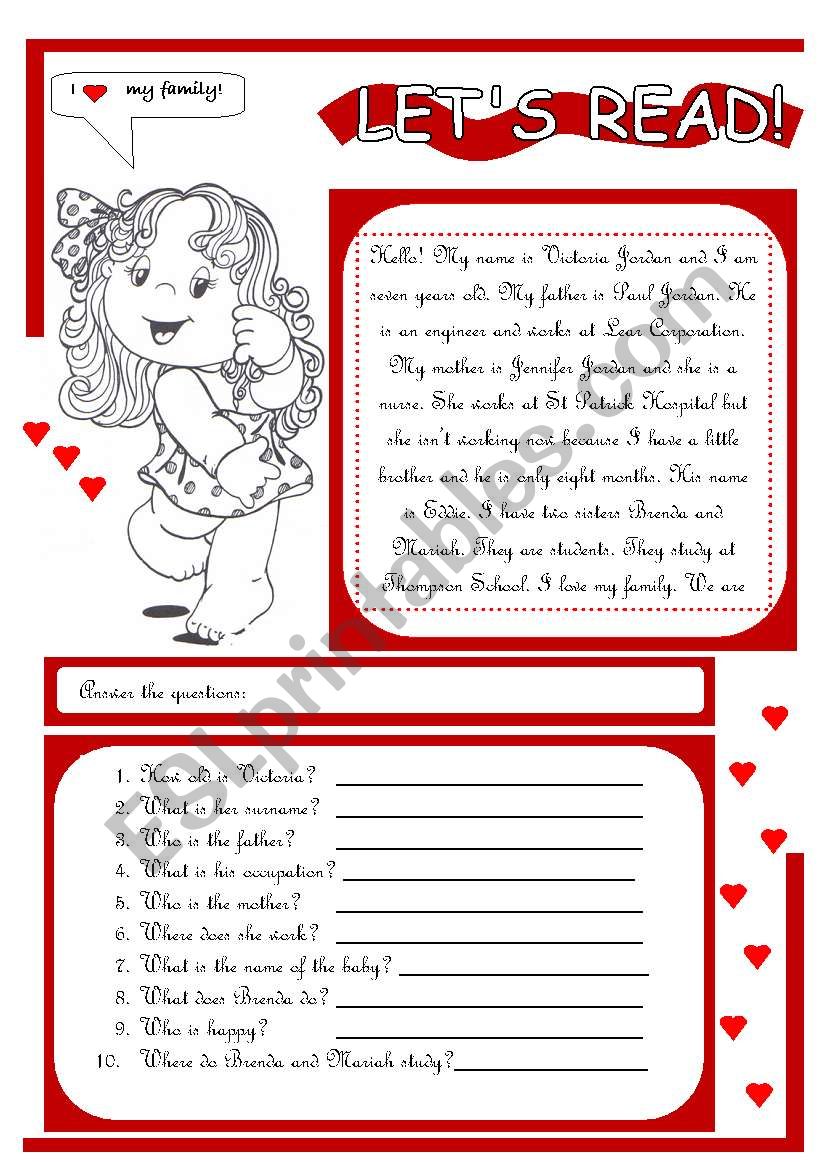 I my family!
LET'S READ!
Hello! My name is Victoria Jordan and I am
seven years old. My father is Paul Jordan. He
is an engineer and works at Lear Corporation.
My mother is Jennifer Jordan and she is a
nurse. She works at St Patrick Hospital but
she isn't working now because I have a little
brother and he is only eight months. His name
is Eddie. I have two sisters Brenda and
Mariah. They are students. They study at
Thompson School. I love my family. We are
Answer the questions:
1. How old is Victoria?
2. What is her surname?
3. Who is the father?
4. What is his occupation?
5. Who is the mother?
6. Where does she work?
7. What is the name of the baby?
8. What does Brenda do?
9. Who is happy?
10. Where do Brenda and Mariah study?
ESLprintables.com